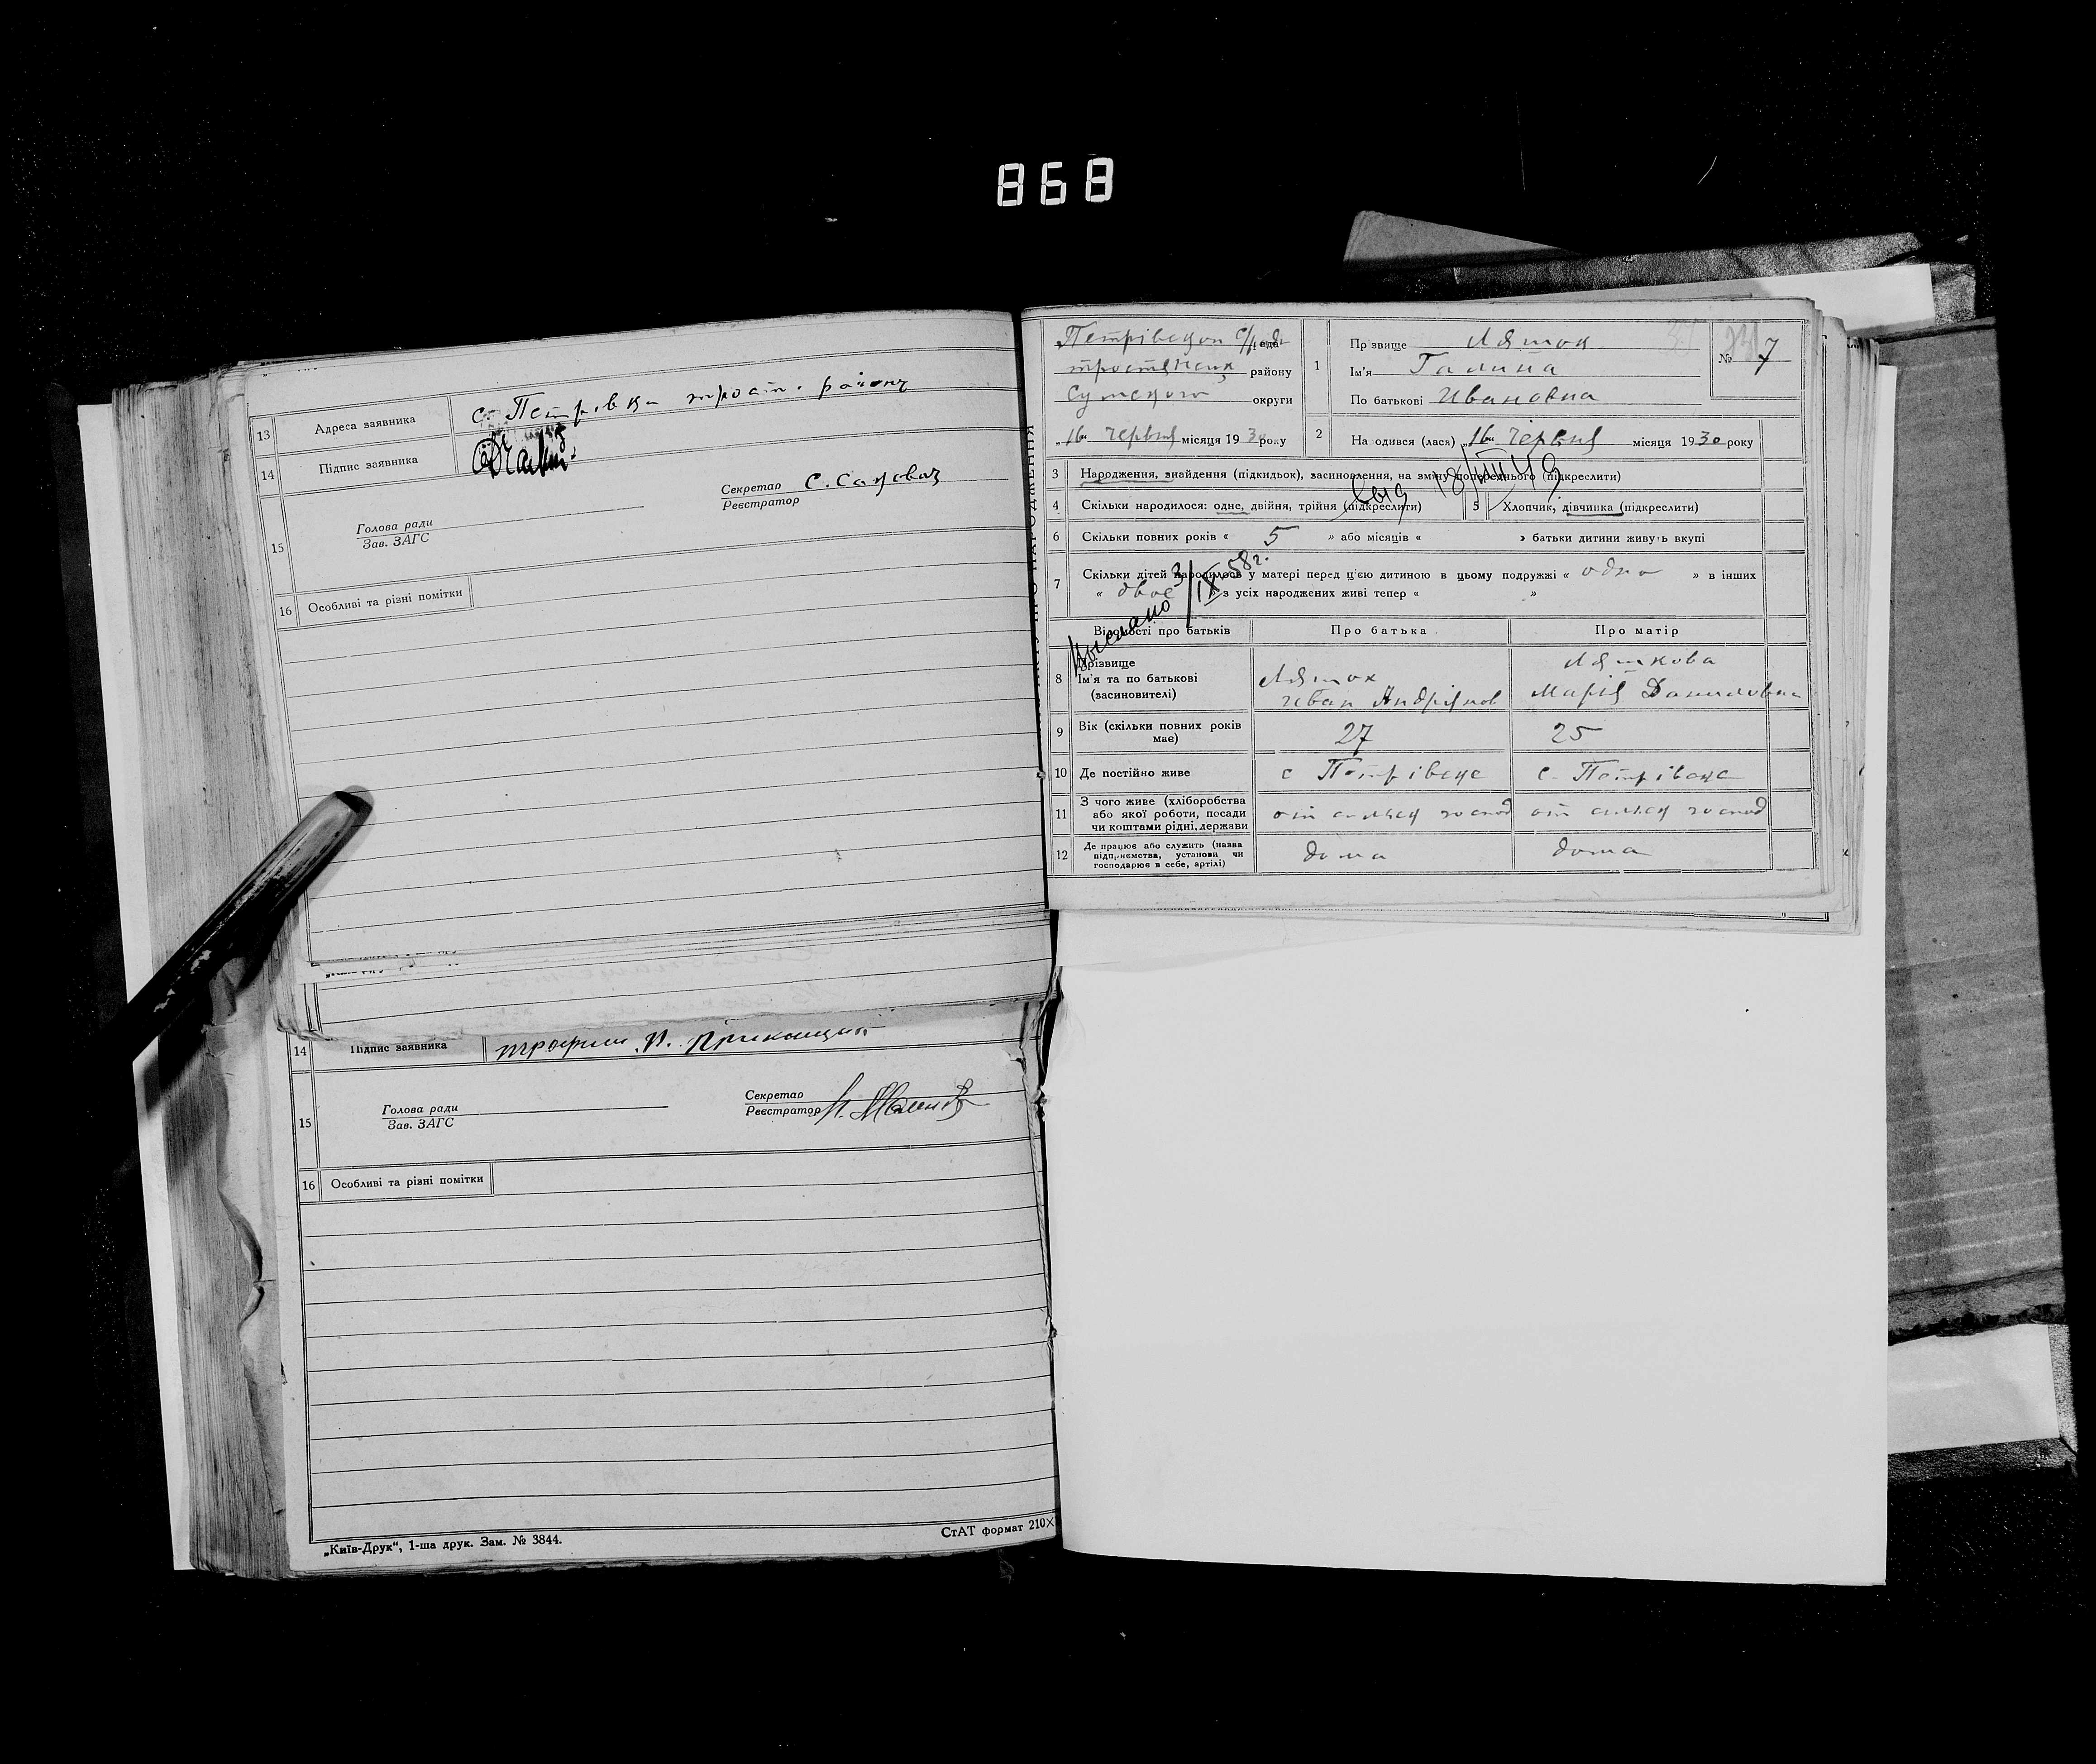 868
13 Адреса заявника с. Петрівка трост. району
14 Підпис заявника
15 Голова ради
Зав. ЗАГС
Секретар
Реєстратор
16 Особливі та різні помітки
14 Підпис заявника
15 Голова ради
Зав. ЗАГС
Секретар
Реєстратор
16 Особливі та різні помітки
„Київ-Друк“, 1-ша друк. Зам. № 3844.
СтАТ формат 210×
району
округи
„16“ червня місяця 1930 року
1 Прізвище Ляшок
Ім'я Галина
По батькові Ивановна
№ 7
2 Народився (лася) „16“ червня місяця 1930 року
3 Народження, знайдення (підкидьок), засиновлення, на зміну попереднього (підкреслити)
18/VIII 49
4 Скільки народилося: одне, двійня, трійня (підкреслити)
5 Хлопчик, дівчинка (підкреслити)
6 Скільки повних років « 5 » або місяців « » батьки дитини живуть вкупі
7 Скільки дітей народилось у матері перед цією дитиною в цьому подружжі « одно » в інших
« двоє » з усіх народжених живі тепер « »
Выслано 3/IX-58г.
Відомості про батьків
Про батька
Про матір
8 Прізвище
Ім'я та по батькові
(засиновителі)
Ляшок
Иван
Ляшкова
Марія Даниловна
9 Вік (скільки повних років має)
27
25
10 Де постійно живе
с Петрівцe
с. Петрівцe
11 З чого живе (хліборобства
або якої роботи, посади
чи коштами рідні, держави
от сильск господ
от сильск господ
12 Де працює або служить (назва
підприємства, установи чи
господарює в себе, артілі)
дома
дома